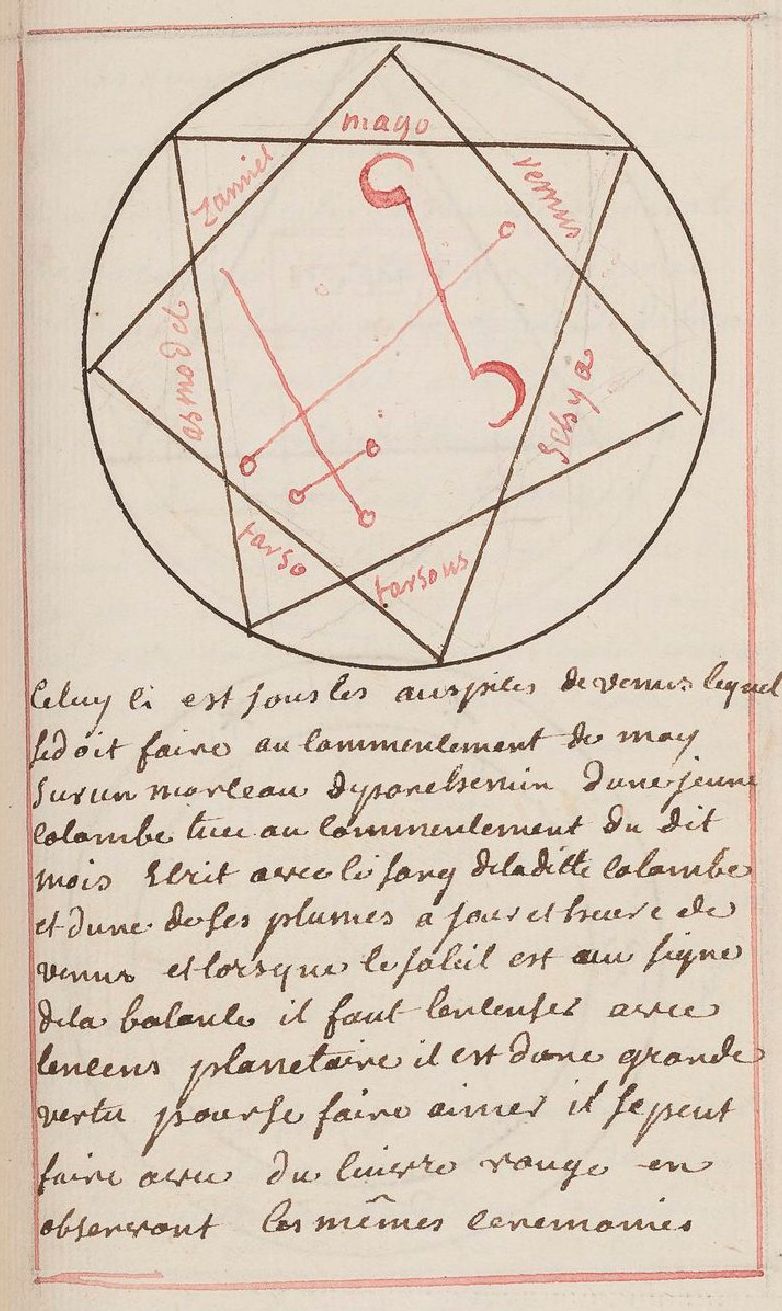 mago
venus
Zamiel
asmodel
Setsya
tarso
tarsous
Celuy ci est sous les auspices de venus lequel
se doit faire au commencement de may
sur un morceau de parchemin dune jeune
colombe tuee au commencement du dit
mois Ecrit avec le sang de la ditte colombe
et dune de ses plumes a jour et heure de
venus et lorsque le soleil est au signe
de la balance il faut lencenser avec
lencens planetaire il est dune grande
vertu pour se faire aimer il se peut
faire avec du cuivre rouge en
observant les mêmes ceremonies